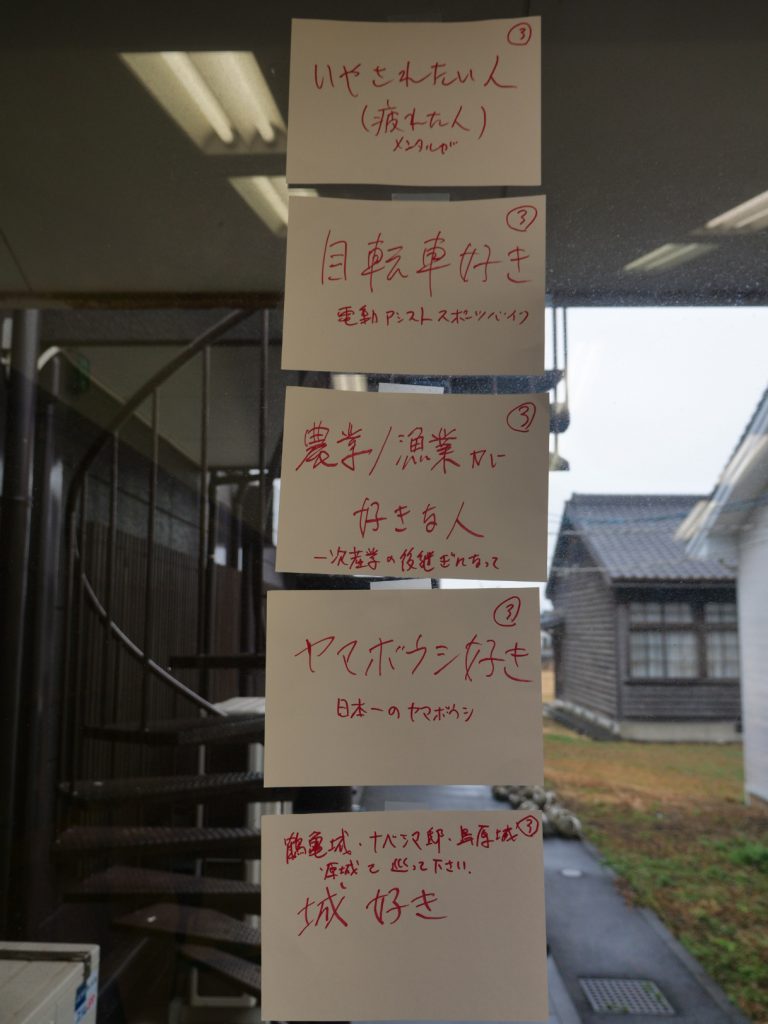 ③
いやされたい人
(疲れた人)
メンタルが
③
自転車好き
電動アシストスポーツバイク
③
農業/漁業が
好きな人
一次産業の後継ぎになって
③
ヤマボウシ好き
日本一のヤマボウシ
③
鶴亀城・ナベシマ邸・島原城
原城も巡って下さい。
城好き